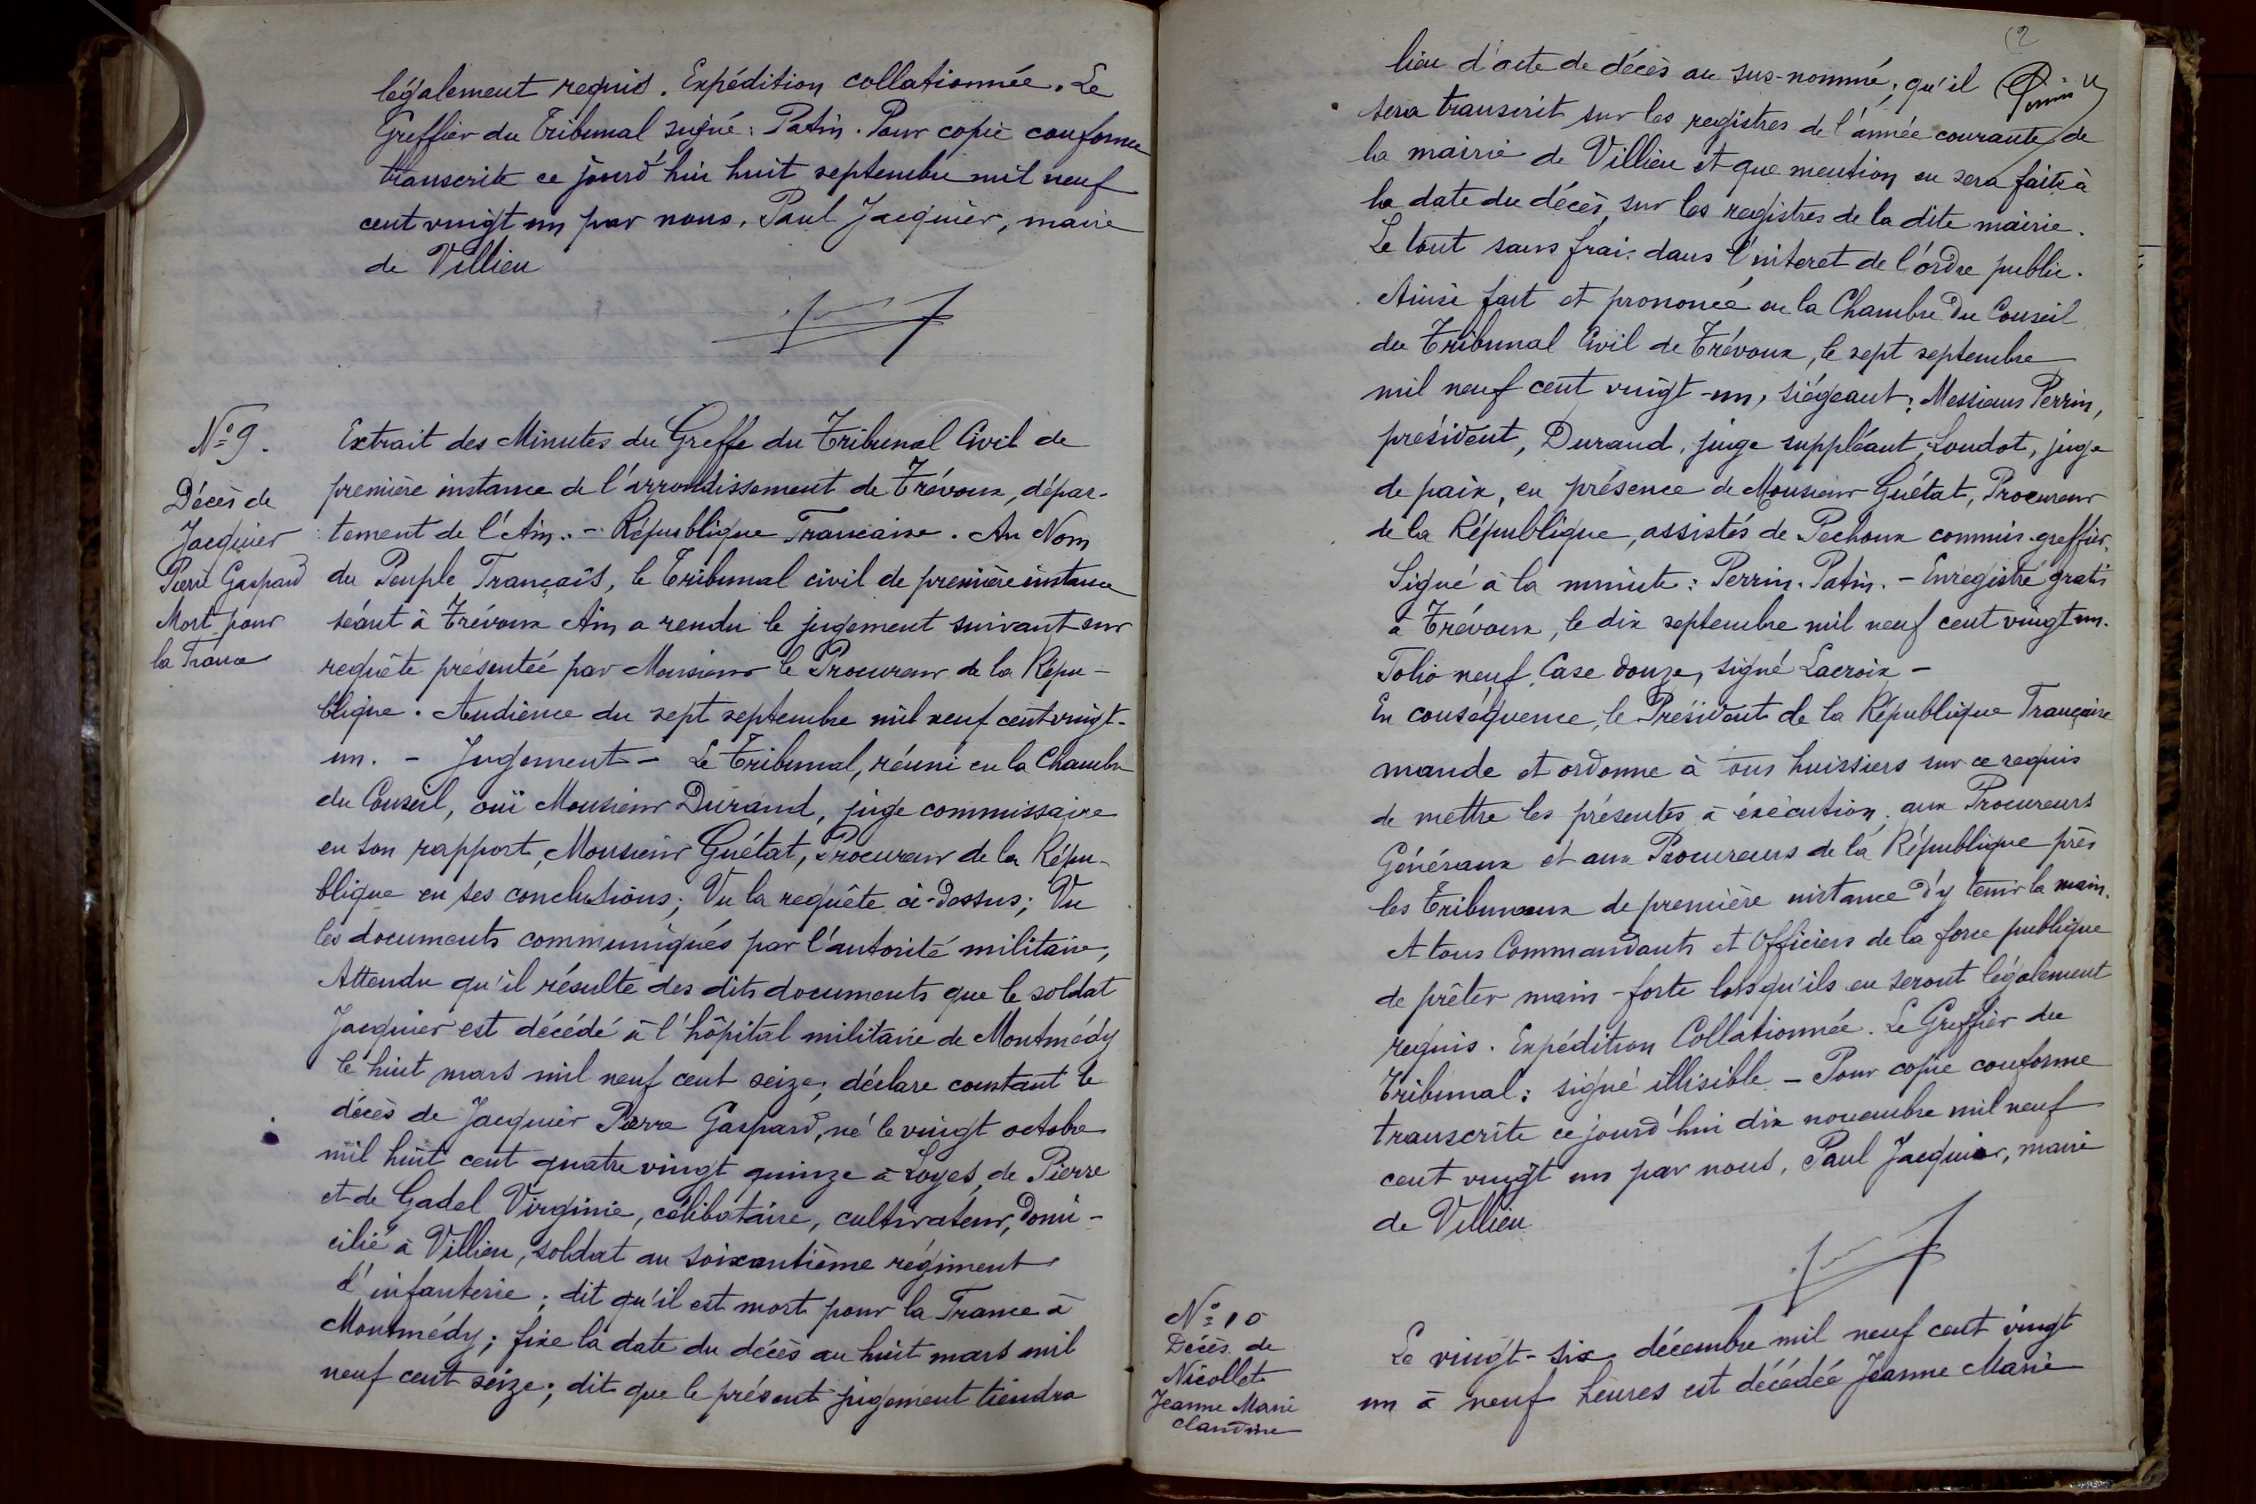 légalement requis. Expédition collationnée. Le
Greffier du Tribunal signé: Patin. Pour copie conforme
transcrite ce jourd'hui huit septembre mil neuf
cent vingt un par nous, Paul Jacquier, maire
de Villieu
N° 9.
Décès de
Jacquier
Pierre Gaspard
Mort pour
la France
Extrait des Minutes du Greffe du Tribunal Civil de
première instance de l'arrondissement de Trévoux, dépar-
tement de l'Ain. - République Française. Au Nom
du Peuple Français, le Tribunal civil de première instance
séant à Trévoux Ain a rendu le jugement suivant sur
requête présentée par Monsieur le Procureur de la Répu-
blique. Audience du sept septembre mil neuf cent vingt-
un. - Jugement - Le Tribunal, réuni en la Chambre
du Conseil, ouï Monsieur Durand, juge commissaire
en son rapport, Monsieur Guétat, Procureur de la Répu-
blique en ses conclusions; Vu la requête ci-dessus; Vu
les documents communiqués par l'autorité militaire,
Attendu qu'il résulte des dits documents que le soldat
Jacquier est décédé à l'hôpital militaire de Montmédy
le huit mars mil neuf cent seize; déclare constant le
décès de Jacquier Pierre Gaspard, né le vingt octobre
mil huit cent quatre vingt quinze à Loyes, de Pierre
et de Gadel Virginie, célibataire, cultivateur, domi-
cilié à Villieu, soldat au soixantième régiment
d'infanterie; dit qu'il est mort pour la France à
Montmédy; fixe la date du décès au huit mars mil
neuf cent seize; dit que le présent jugement tiendra
2
lieu d'acte de décès au sus-nommé; qu'il
sera transcrit sur les registres de l'année courante de
la mairie de Villieu et que mention en sera faite à
la date du décès, sur les registres de la dite mairie.
Le tout sans frais dans l'interet de l'ordre public.
Ainsi fait et prononcé en la Chambre du Conseil
du Tribunal Civil de Trévoux, le sept septembre
mil neuf cent vingt-un, siégeant: Messieurs Perrin,
président, Durand, juge suppléant, Loudot, juge
de paix, en présence de Monsieur Guétat, Procureur
de la République, assistés de Pechoux commis-greffier.
Signé à la minute: Perrin. Patin. - Enregistré gratis
à Trévoux, le dix septembre mil neuf cent vingt un.
Folio neuf, Case douze, signé Lacroix -
En conséquence, le Président de la République Française
mande et ordonne à tous huissiers sur ce requis
de mettre les présentes à éxécution; aux Procureurs
Généraux et aux Procureurs de la République près
les Tribunaux de première instance d'y tenir la main.
A tous Commandants et Officiers de la force publique
de prêter main-forte lorsqu'ils en seront légalement
requis. Expédition Collationnée. Le Greffier du
Tribunal: signé illisible - Pour copie conforme
transcrite ce jourd'hui dix novembre mil neuf
cent vingt un par nous, Paul Jacquier, maire
de Villieu
N° 10
Décès de
Nicollet
Jeanne Marie
Claudine
Le vingt-six décembre mil neuf cent vingt
un à neuf heures est décédée Jeanne Marie